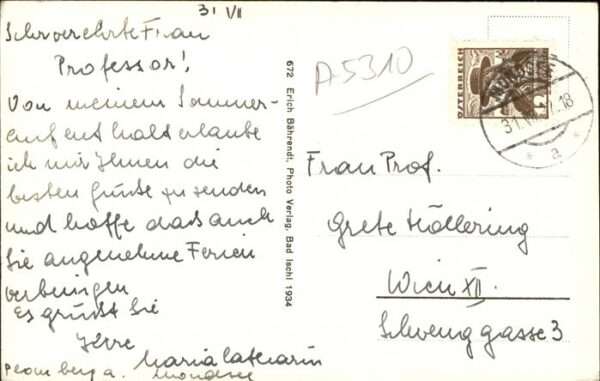 31 VII
Sehr verehrte Frau
Professor!
Von meinem Sommer-
aufenthalt erlaube
ich mir Ihnen die
besten Grüsse zu senden
und hoffe dass auch
Sie angenehme Ferien
verbringen
Es grüsst Sie
Ihre
Maria
a. Mondsee
672 Erich Bährendt, Photo Verlag, Bad Ischl 1934
A5310
ÖSTERREICH
31. VII
a
Frau Prof.
Grete Höllering
Wien XII.
Schwenggasse 3